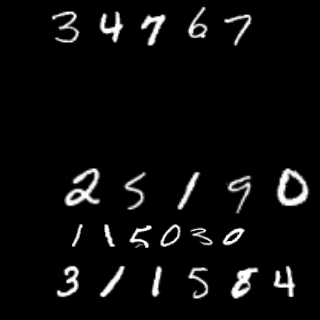 34767
25190
115030
311584